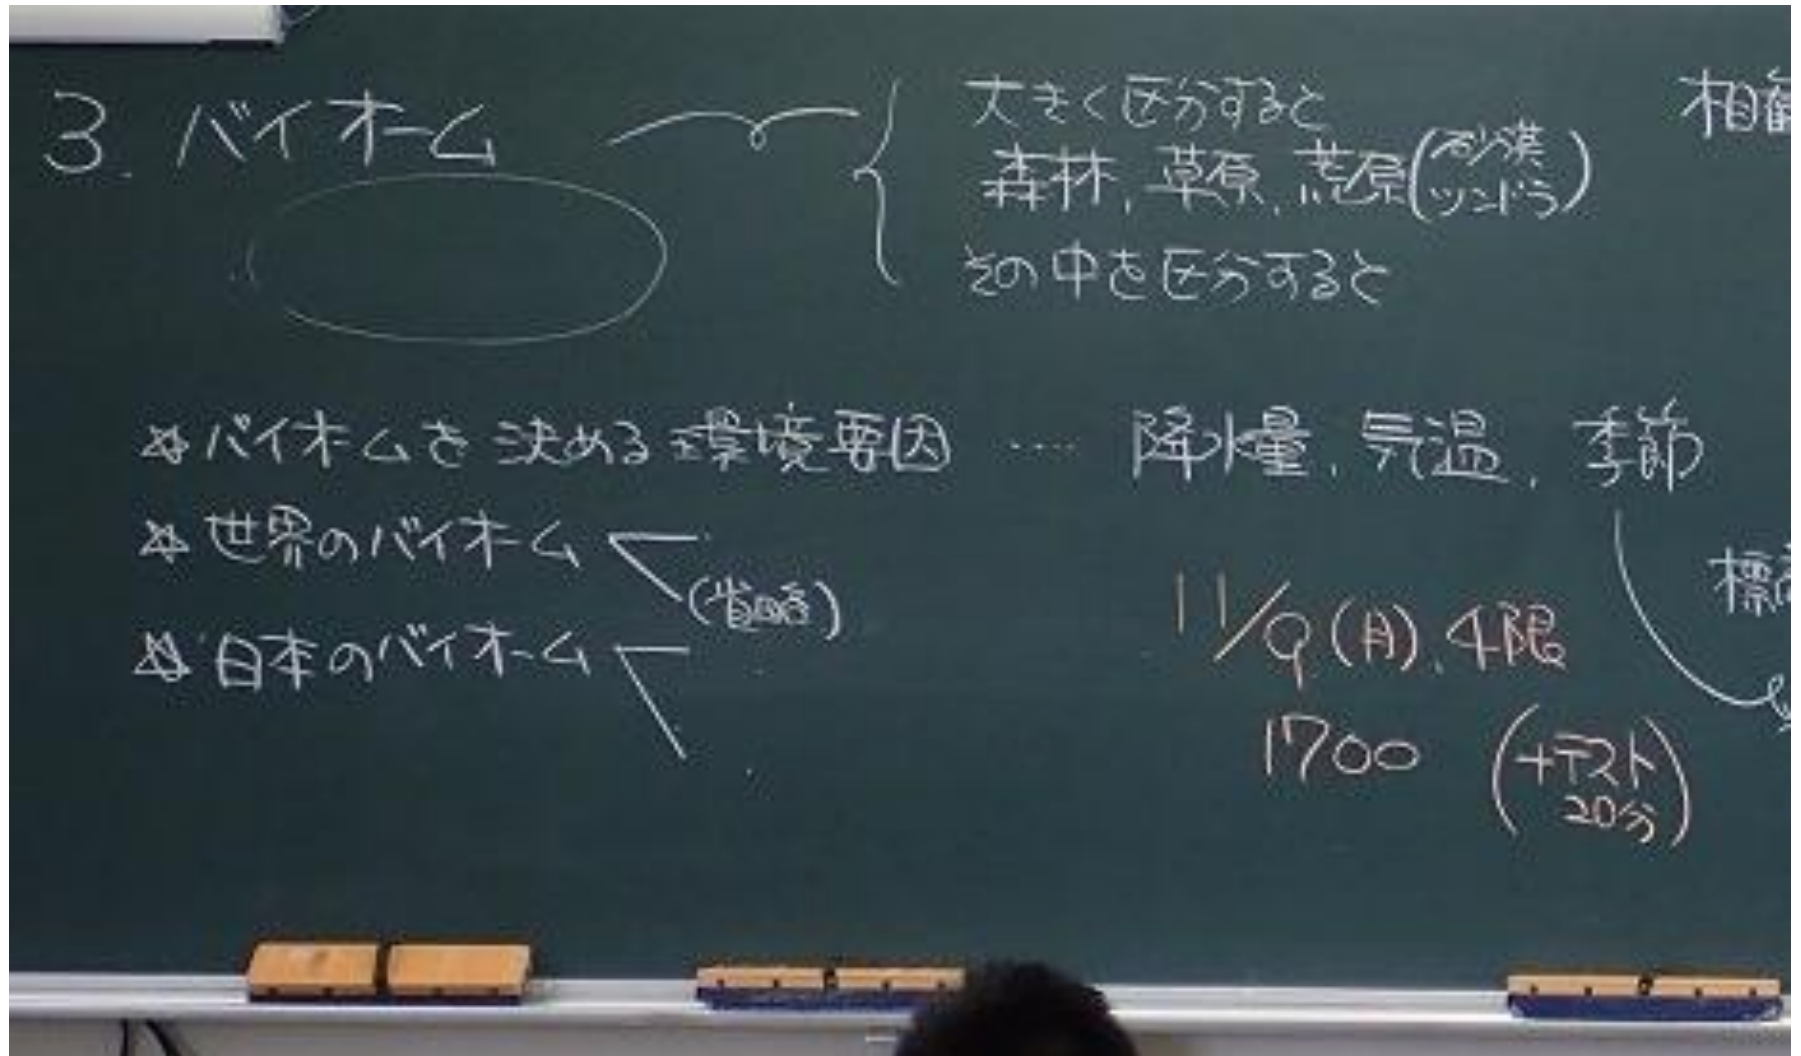 3. バイオーム
大きく区分すると
森林, 草原, 荒原(砂漠 ツンドラ)
その中を区分すると
相観
☆バイオームを決める環境要因 ‥‥ 降水量, 気温, 季節
☆世界のバイオーム
(省略)
☆日本のバイオーム
標高
11/9(月), 4限
1700 (+テスト 20分)